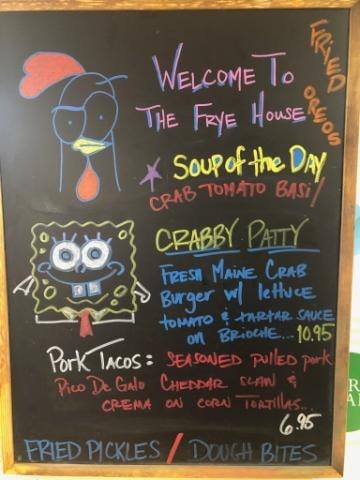 Welcome To
The Frye House
Fried Oreos
Soup of the Day
Crab Tomato Basil
Crabby Patty
Fresh Maine Crab
Burger w/ lettuce
tomato & tartar sauce
on Brioche... 10.95
Pork Tacos: Seasoned pulled pork
Pico De Galo Cheddar Slaw &
Crema on Corn Tortillas...
6.95
Fried Pickles / Dough Bites